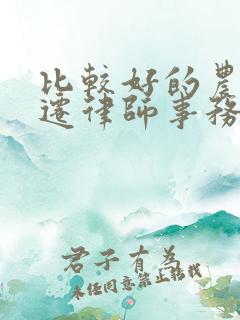 比較好的農
遷律師事務
君子有為
未经同意禁止搭我